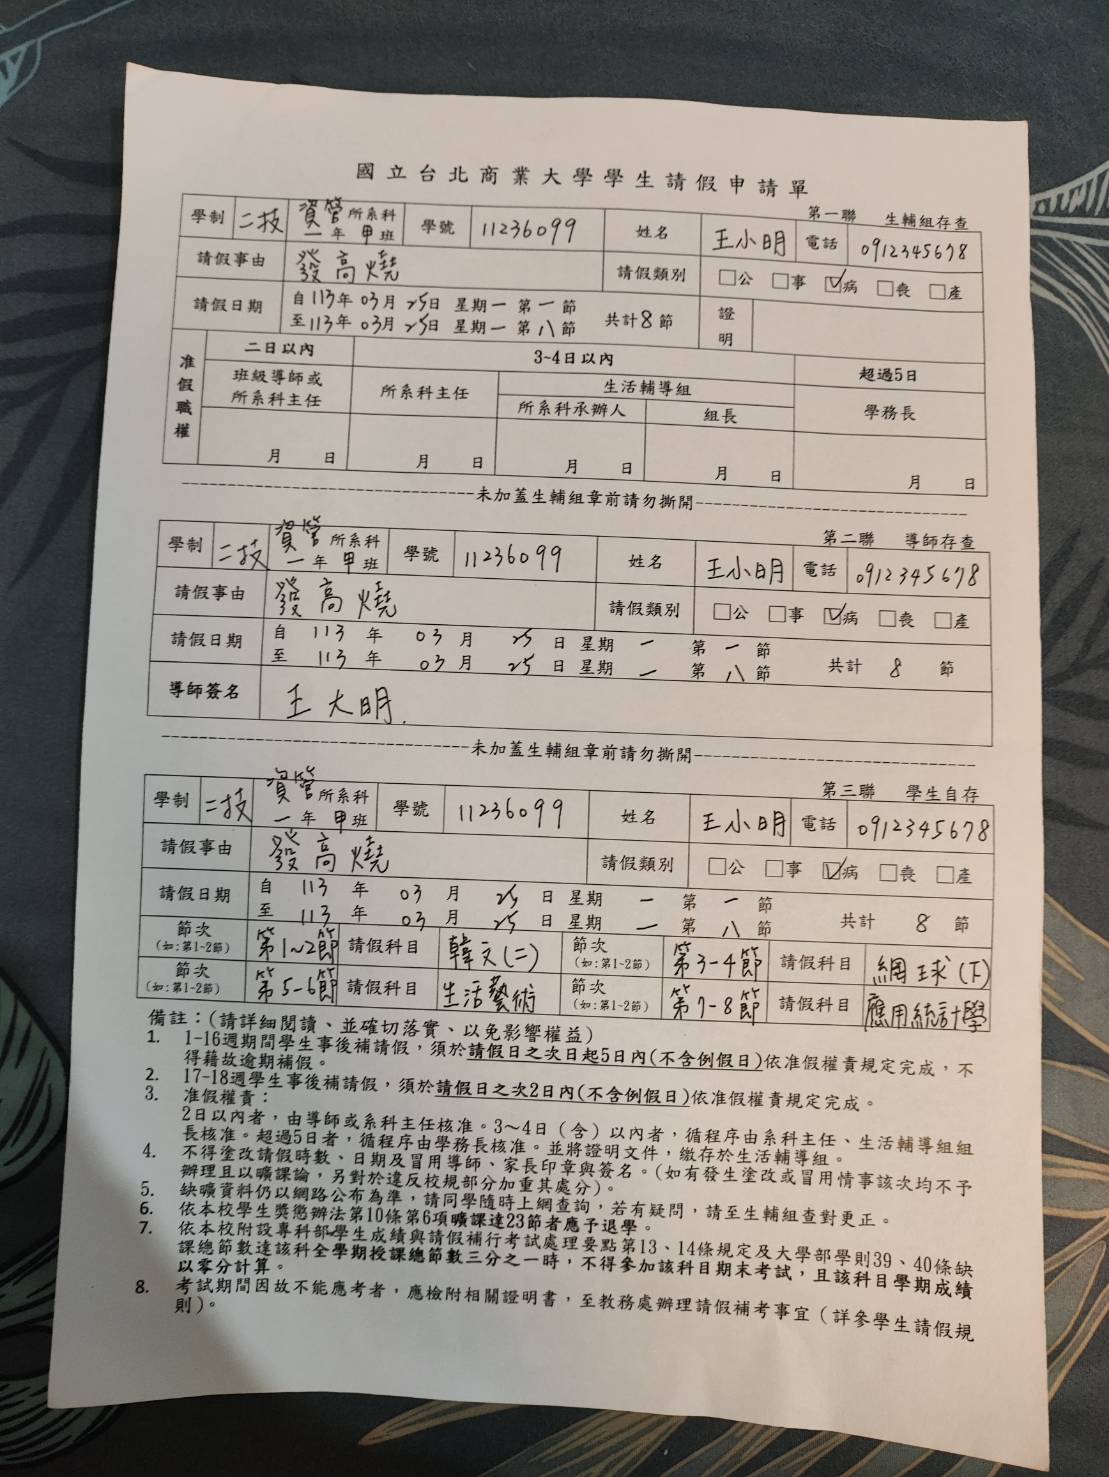 國立台北商業大學學生請假申請單
第一聯 生輔組存查
學制 二技 資管所系科 一年甲班 學號 11236099 姓名 王小明 電話 0912345678
請假事由 發高燒 請假類別 □公 □事 ☑病 □喪 □產
請假日期 自113年03月25日 星期一 第一節
至113年03月25日 星期一 第八節 共計8節 證明
准假職權 二日以內 3~4日以內 超過5日
班級導師或所系科主任 所系科主任 生活輔導組 學務長
所系科承辦人 組長
月 日 月 日 月 日 月 日 月 日
未加蓋生輔組章前請勿撕開
第二聯 導師存查
學制 二技 資管所系科 一年甲班 學號 11236099 姓名 王小明 電話 0912345678
請假事由 發高燒 請假類別 □公 □事 ☑病 □喪 □產
請假日期 自 113 年 03 月 25 日 星期 一 第 一 節
至 113 年 03 月 25 日 星期 一 第 八 節 共計 8 節
導師簽名 王大明.
未加蓋生輔組章前請勿撕開
第三聯 學生自存
學制 二技 資管所系科 一年甲班 學號 11236099 姓名 王小明 電話 0912345678
請假事由 發高燒 請假類別 □公 □事 ☑病 □喪 □產
請假日期 自 113 年 03 月 25 日 星期 一 第 一 節
至 113 年 03 月 25 日 星期 一 第 八 節 共計 8 節
節次(如:第1-2節) 第1~2節 請假科目 韓文(二) 節次(如:第1-2節) 第3-4節 請假科目 網球(下)
節次(如:第1-2節) 第5-6節 請假科目 生活藝術 節次(如:第1-2節) 第7-8節 請假科目 應用統計學
備註：(請詳細閱讀、並確切落實、以免影響權益)
1. 1-16週期間學生事後補請假，須於請假日之次日起5日內(不含例假日)依准假權責規定完成，不
得藉故逾期補假。
2. 17-18週學生事後補請假，須於請假日之次2日內(不含例假日)依准假權責規定完成。
3. 准假權責：
2日以內者，由導師或系科主任核准。3~4日（含）以內者，循程序由系科主任、生活輔導組組
長核准。超過5日者，循程序由學務長核准。並將證明文件，繳存於生活輔導組。
4. 不得塗改請假時數、日期及冒用導師、家長印章與簽名。(如有發生塗改或冒用情事該次均不予
辦理且以曠課論，另對於違反校規部分加重其處分)。
5. 缺曠資料仍以網路公布為準，請同學隨時上網查詢，若有疑問，請至生輔組查對更正。
6. 依本校學生獎懲辦法第10條第6項曠課達23節者應予退學。
7. 依本校附設專科部學生成績與請假補行考試處理要點第13、14條規定及大學部學則39、40條缺
課總節數達該科全學期授課總節數三分之一時，不得參加該科目期末考試，且該科目學期成績
以零分計算。
8. 考試期間因故不能應考者，應檢附相關證明書，至教務處辦理請假補考事宜（詳參學生請假規
則）。